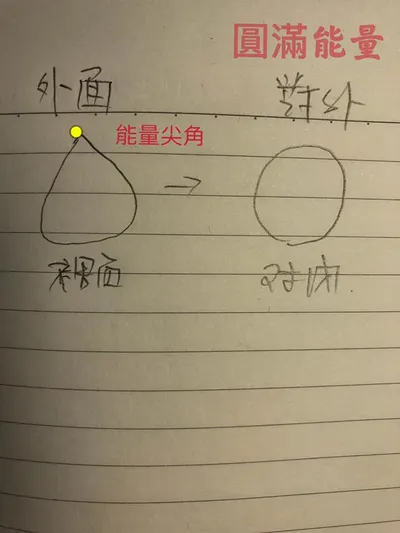 圓滿能量
外面
對外
能量尖角
裡面
对内